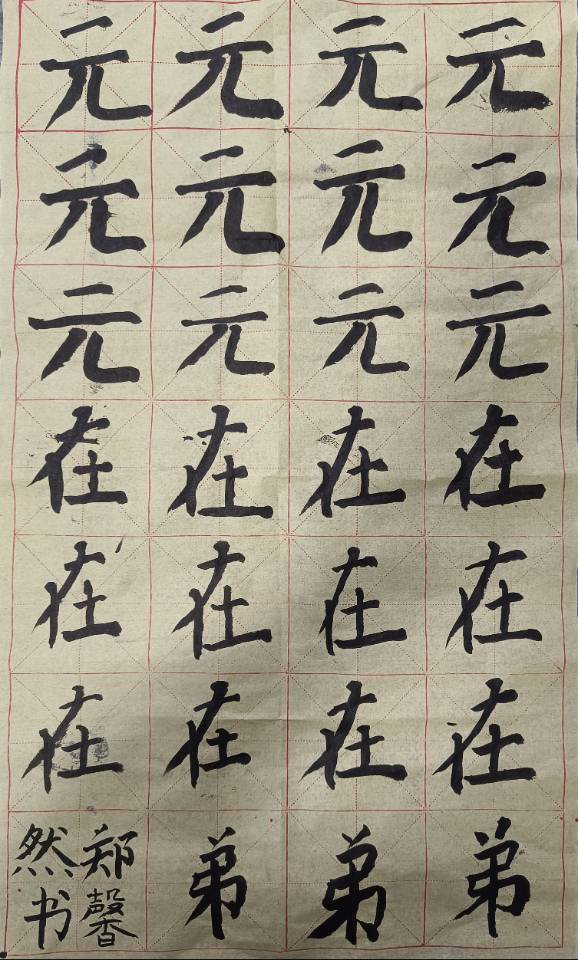 元元元元
元元元元
元元元元
在在在在
在在在在
在在在在
弟弟弟
郑馨
然书